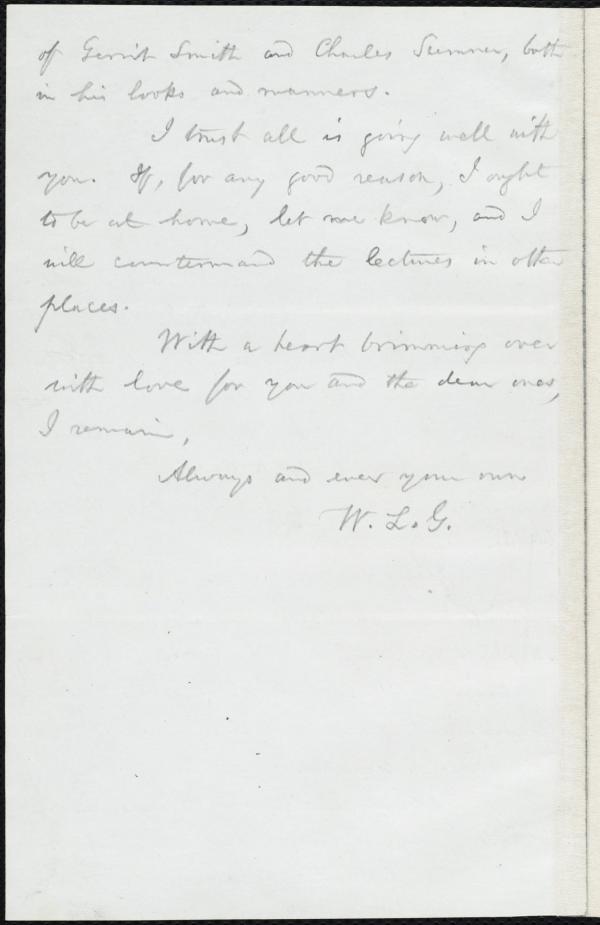 of Gerrit Smith and Charles Sumner, both
in his looks and manners.
I trust all is going well with
you. If, for any good reason, I ought
to be at home, let me know, and I
will countermand the lectures in other
places.
With a heart brimming over
with love for you and the dear ones,
I remain,
Always and ever your own
W. L. G.